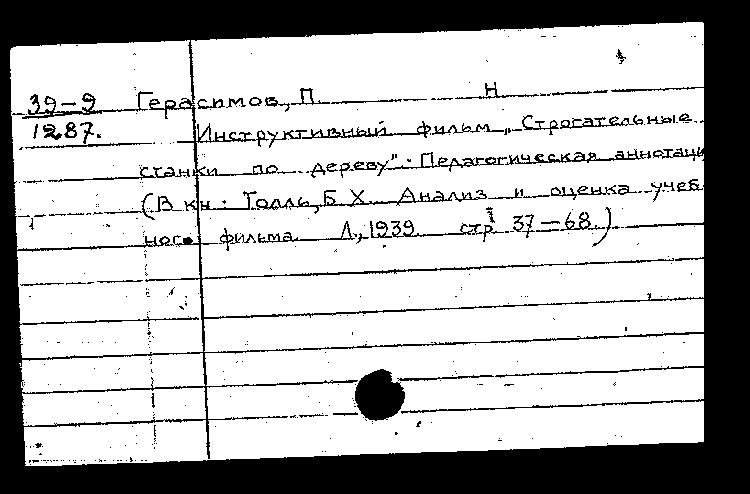 39-9 Герасимов, П. Н.
1287. Инструктивный фильм „Строгательные
станки по дереву". Педагогическая аннотаци
(В кн: Толль, Б. Х. Анализ и оценка учеб
ного фильма. Л., 1939. стр. 37-68.)